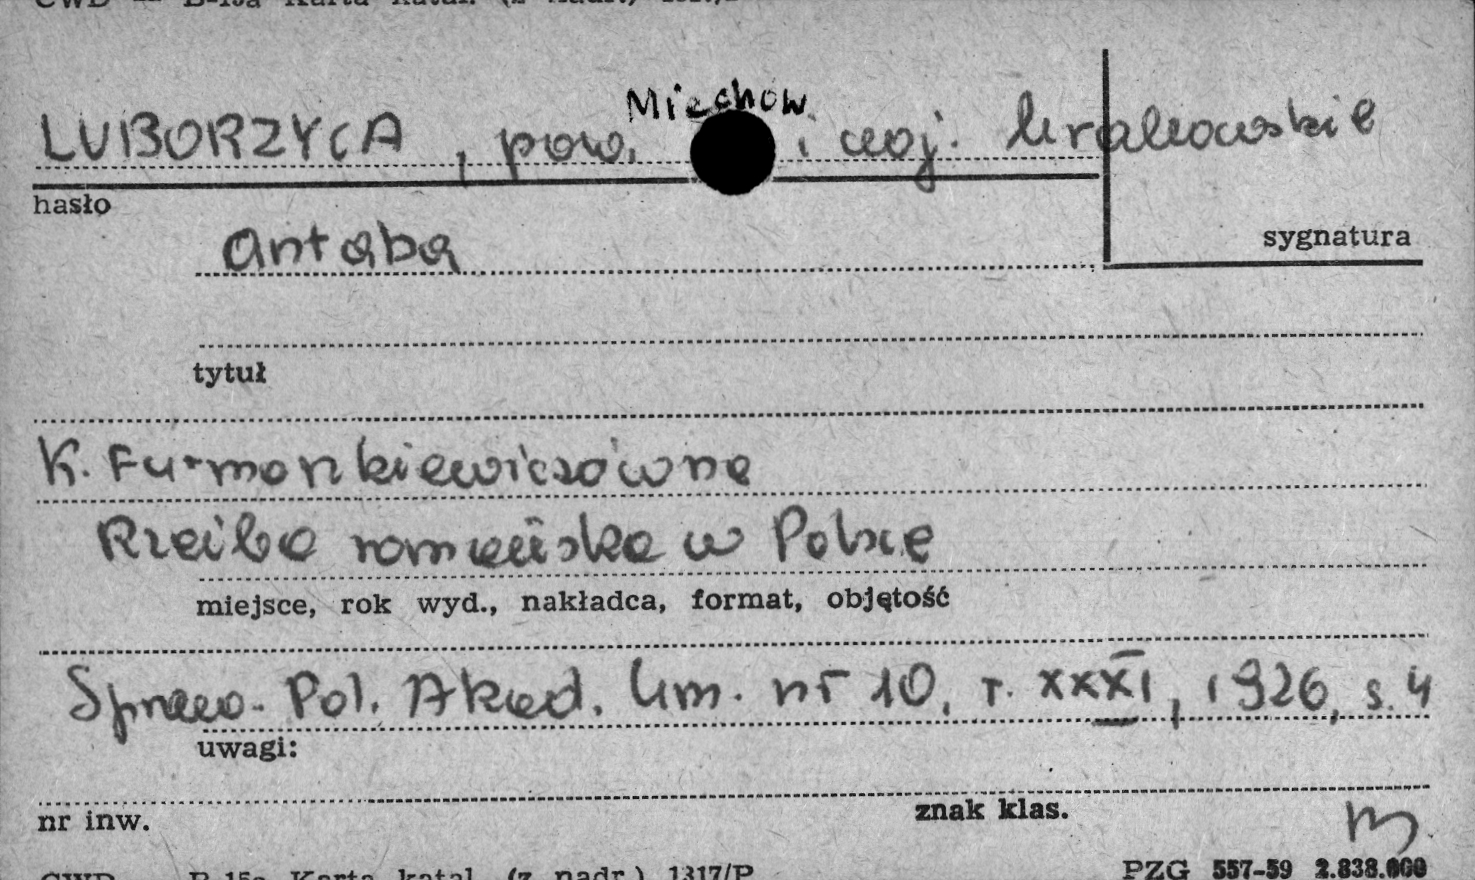 CWD — B-15a Karta katal. (z nadr.) 1317/P
Miechow.
LUBORZYCA, pow. i woj. krakowskie
hasło
sygnatura
Antaba
tytuł
K. Furmankiewiczówna
Rzeźba romańska w Polsce
miejsce, rok wyd., nakładca, format, objętość
Spraw. Pol. Akad. Um. nr 10, T. XXXI, 1926, s. 4
uwagi:
nr inw.
znak klas.
CWD — B-15a Karta katal. (z nadr.) 1317/P
PZG 557-59 2.838.000